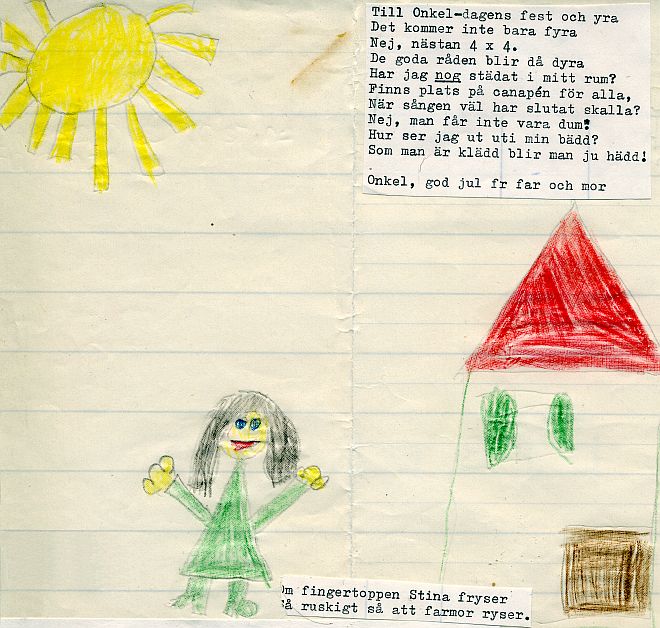 Till Onkel-dagens fest och yra
Det kommer inte bara fyra
Nej, nästan 4 x 4.
De goda råden blir då dyra
Har jag nog städat i mitt rum?
Finns plats på canapén för alla,
När sången väl har slutat skalla?
Nej, man får inte vara dum!
Hur ser jag ut uti min bädd?
Som man är klädd blir man ju hädd!
Onkel, god jul fr far och mor
Om fingertoppen Stina fryser
så ruskigt så att farmor ryser.